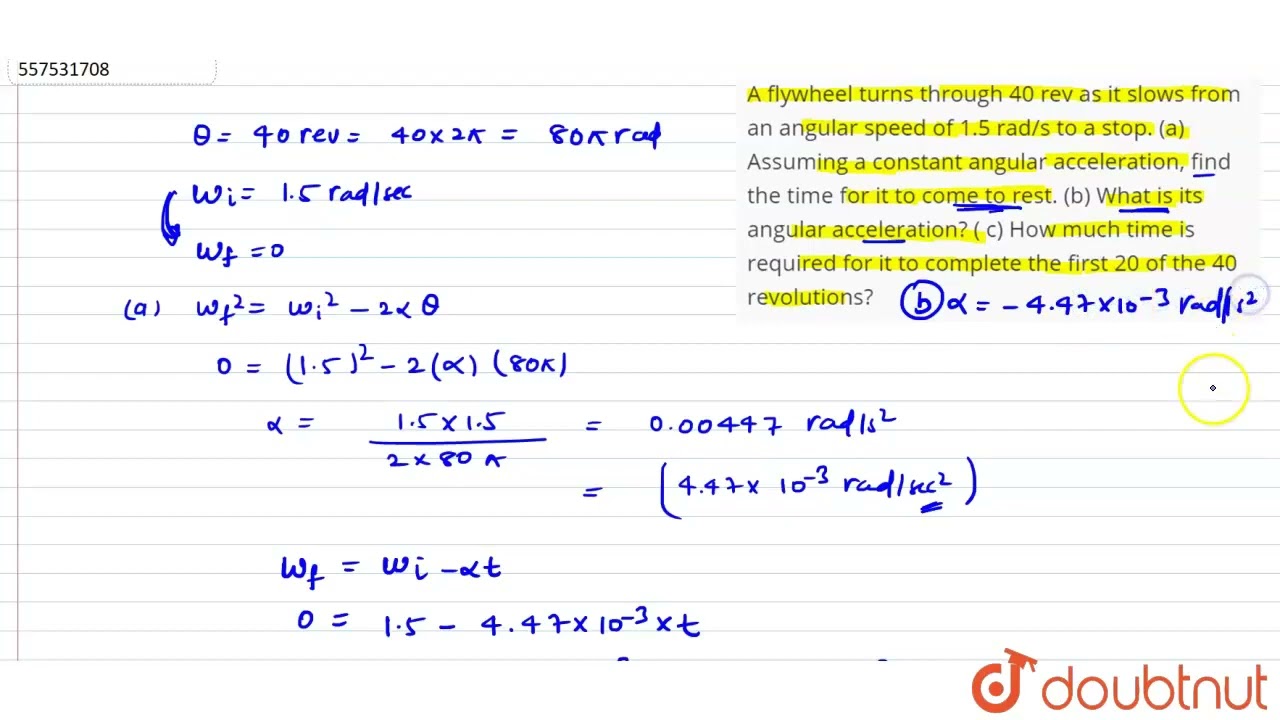 557531708
A flywheel turns through 40 rev as it slows from
an angular speed of 1.5 rad/s to a stop. (a)
Assuming a constant angular acceleration, find
the time for it to come to rest. (b) What is its
angular acceleration? ( c) How much time is
required for it to complete the first 20 of the 40
revolutions?
ⓑ α = - 4.47×10⁻³ rad/s²
θ = 40 rev = 40×2π = 80π rad
ωi = 1.5 rad/sec
ωf = 0
(a) ωf² = ωi² - 2αθ
0 = (1.5)² - 2(α) (80π)
α = 1.5×1.5 = 0.00447 rad/s²
2×80π
= (4.47× 10⁻³ rad/sec²)
ωf = ωi - αt
0 = 1.5 - 4.47×10⁻³×t
doubtnut